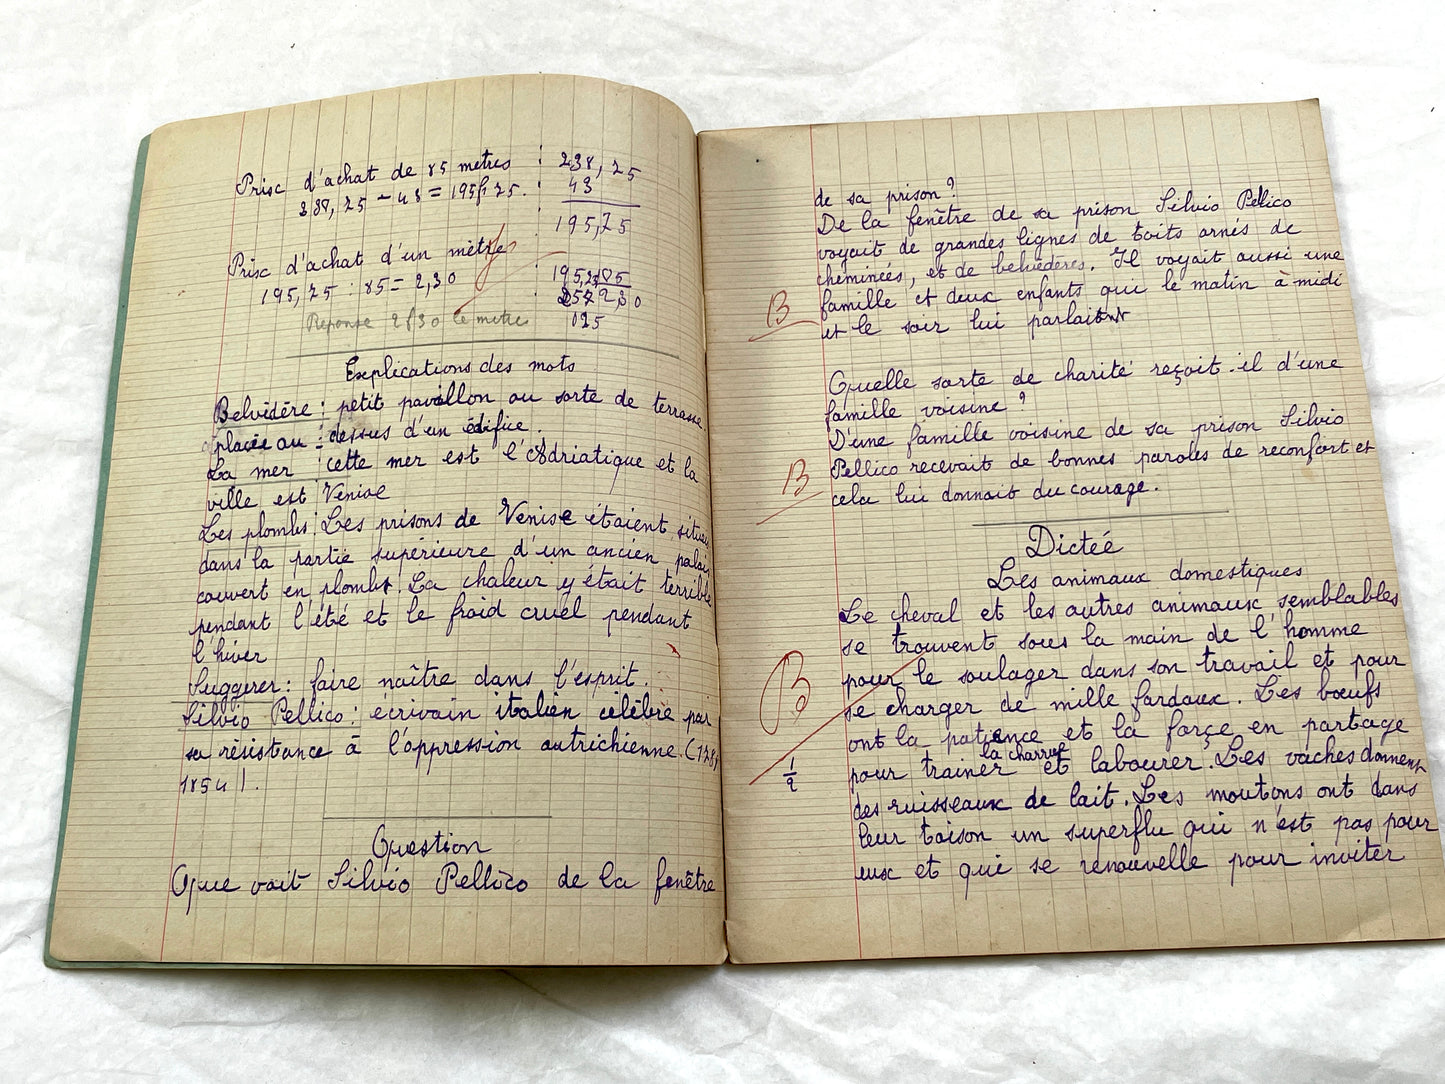 Prix d'achat de 85 metres : 238,75
238,75 - 43 = 195f,75. : 43
195,75
Prix d'achat d'un mètre
195,75 : 85 = 2,30
195,75 85
257 2,30
025
Réponse 2f30 le metre
Explications des mots
Belvédère : petit pavillon ou sorte de terrasse
placée au : dessus d'un édifice.
La mer : cette mer est l'Adriatique et la
ville est Venise
Les plombs : Les prisons de Venise étaient situées
dans la partie supérieure d'un ancien palais
couvert en plomb. La chaleur y était terrible
pendant l'été et le froid cruel pendant
l'hiver
Suggerer : faire naître dans l'esprit.
Silvio Pellico : écrivain italien célèbre par
sa résistance à l'oppression autrichienne. (178
1854).
Question
Que voit Silvio Pellico de la fenêtre
de sa prison ?
De la fenêtre de sa prison Silvio Pellico
voyait de grandes lignes de toits ornés de
cheminées, et de belvédères. Il voyait aussi une
B famille et deux enfants qui le matin à midi
et le soir lui parlaient
Quelle sorte de charité reçoit-il d'une
famille voisine ?
D'une famille voisine de sa prison Silvio
B Pellico recevait de bonnes paroles de reconfort et
cela lui donnait du courage.
Dictée
Les animaux domestiques
Le cheval et les autres animaux semblables
se trouvent sous la main de l'homme
B pour le soulager dans son travail et pour
se charger de mille fardaux. Les bœufs
ont la patience et la forçe en partage
la charrue
1/2 pour trainer et labourer. Les vaches donnent
des ruisseaux de lait. Les moutons ont dans
leur toison un superflu qui n'est pas pour
eux et qui se renouvelle pour inviter